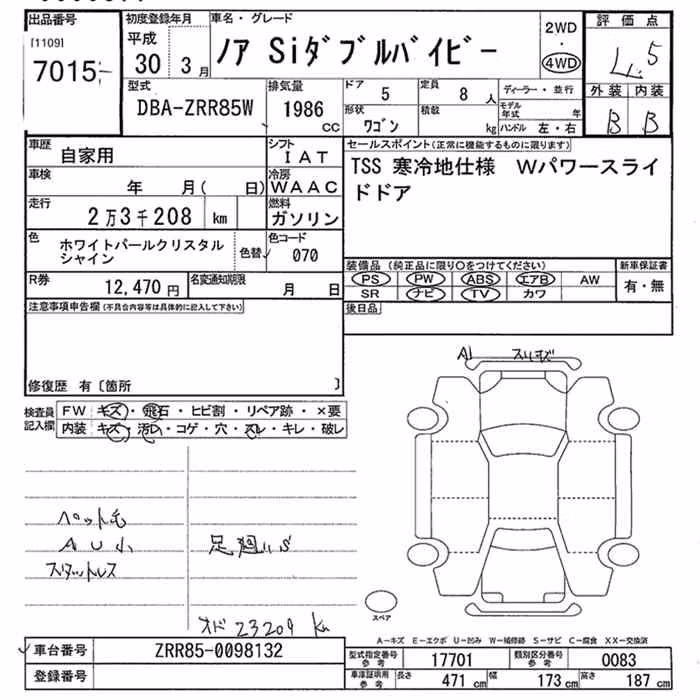 出品番号
[1109]
7015
初度登録年月
平成
30 3月
車名・グレード
ノア Siダブルバイビー
2WD
・
4WD
評価点
5
外装 内装
B B
型式
DBA-ZRR85W
排気量
1986
CC
ドア 5
定員 8人
ディーラー・並行
形状 ワゴン
積載 kg
モデル年式 年
ハンドル 左・右
車歴 自家用
シフト IAT
車検 年 月( 日)
冷房 WAAC
走行 2万3千208 km
燃料 ガソリン
色 ホワイトパールクリスタルシャイン
色替
色コード 070
R券 12,470円
名変通知期限 月 日
セールスポイント(正常に機能するものに限ります)
TSS 寒冷地仕様 Wパワースライ
ドドア
装備品(純正品に限り○をつけてください)
PS PW ABS エアB AW
SR ナビ TV カワ
新車保証書
有・無
後日品
注意事項申告欄(不具合内容等は具体的に記入して下さい)
修復歴 有〔箇所 〕
検査員
記入欄
FW キズ・飛石・ヒビ割・リペア跡・×要
内装 キズ・汚れ・コゲ・穴・スレ・キレ・破レ
A1 スリキズ
ペット毛
AU小
スタットレス
足廻りS
オド 23209 km
スペア
A-キズ E-エクボ U-凹み W-補修跡 S-サビ C-腐食 XX-交換済
車台番号 ZRR85-0098132
登録番号
型式指定番号
参考
17701
類別区分番号
参考
0083
車庫証明用
参考
長さ 471cm 幅 173cm 高さ 187cm